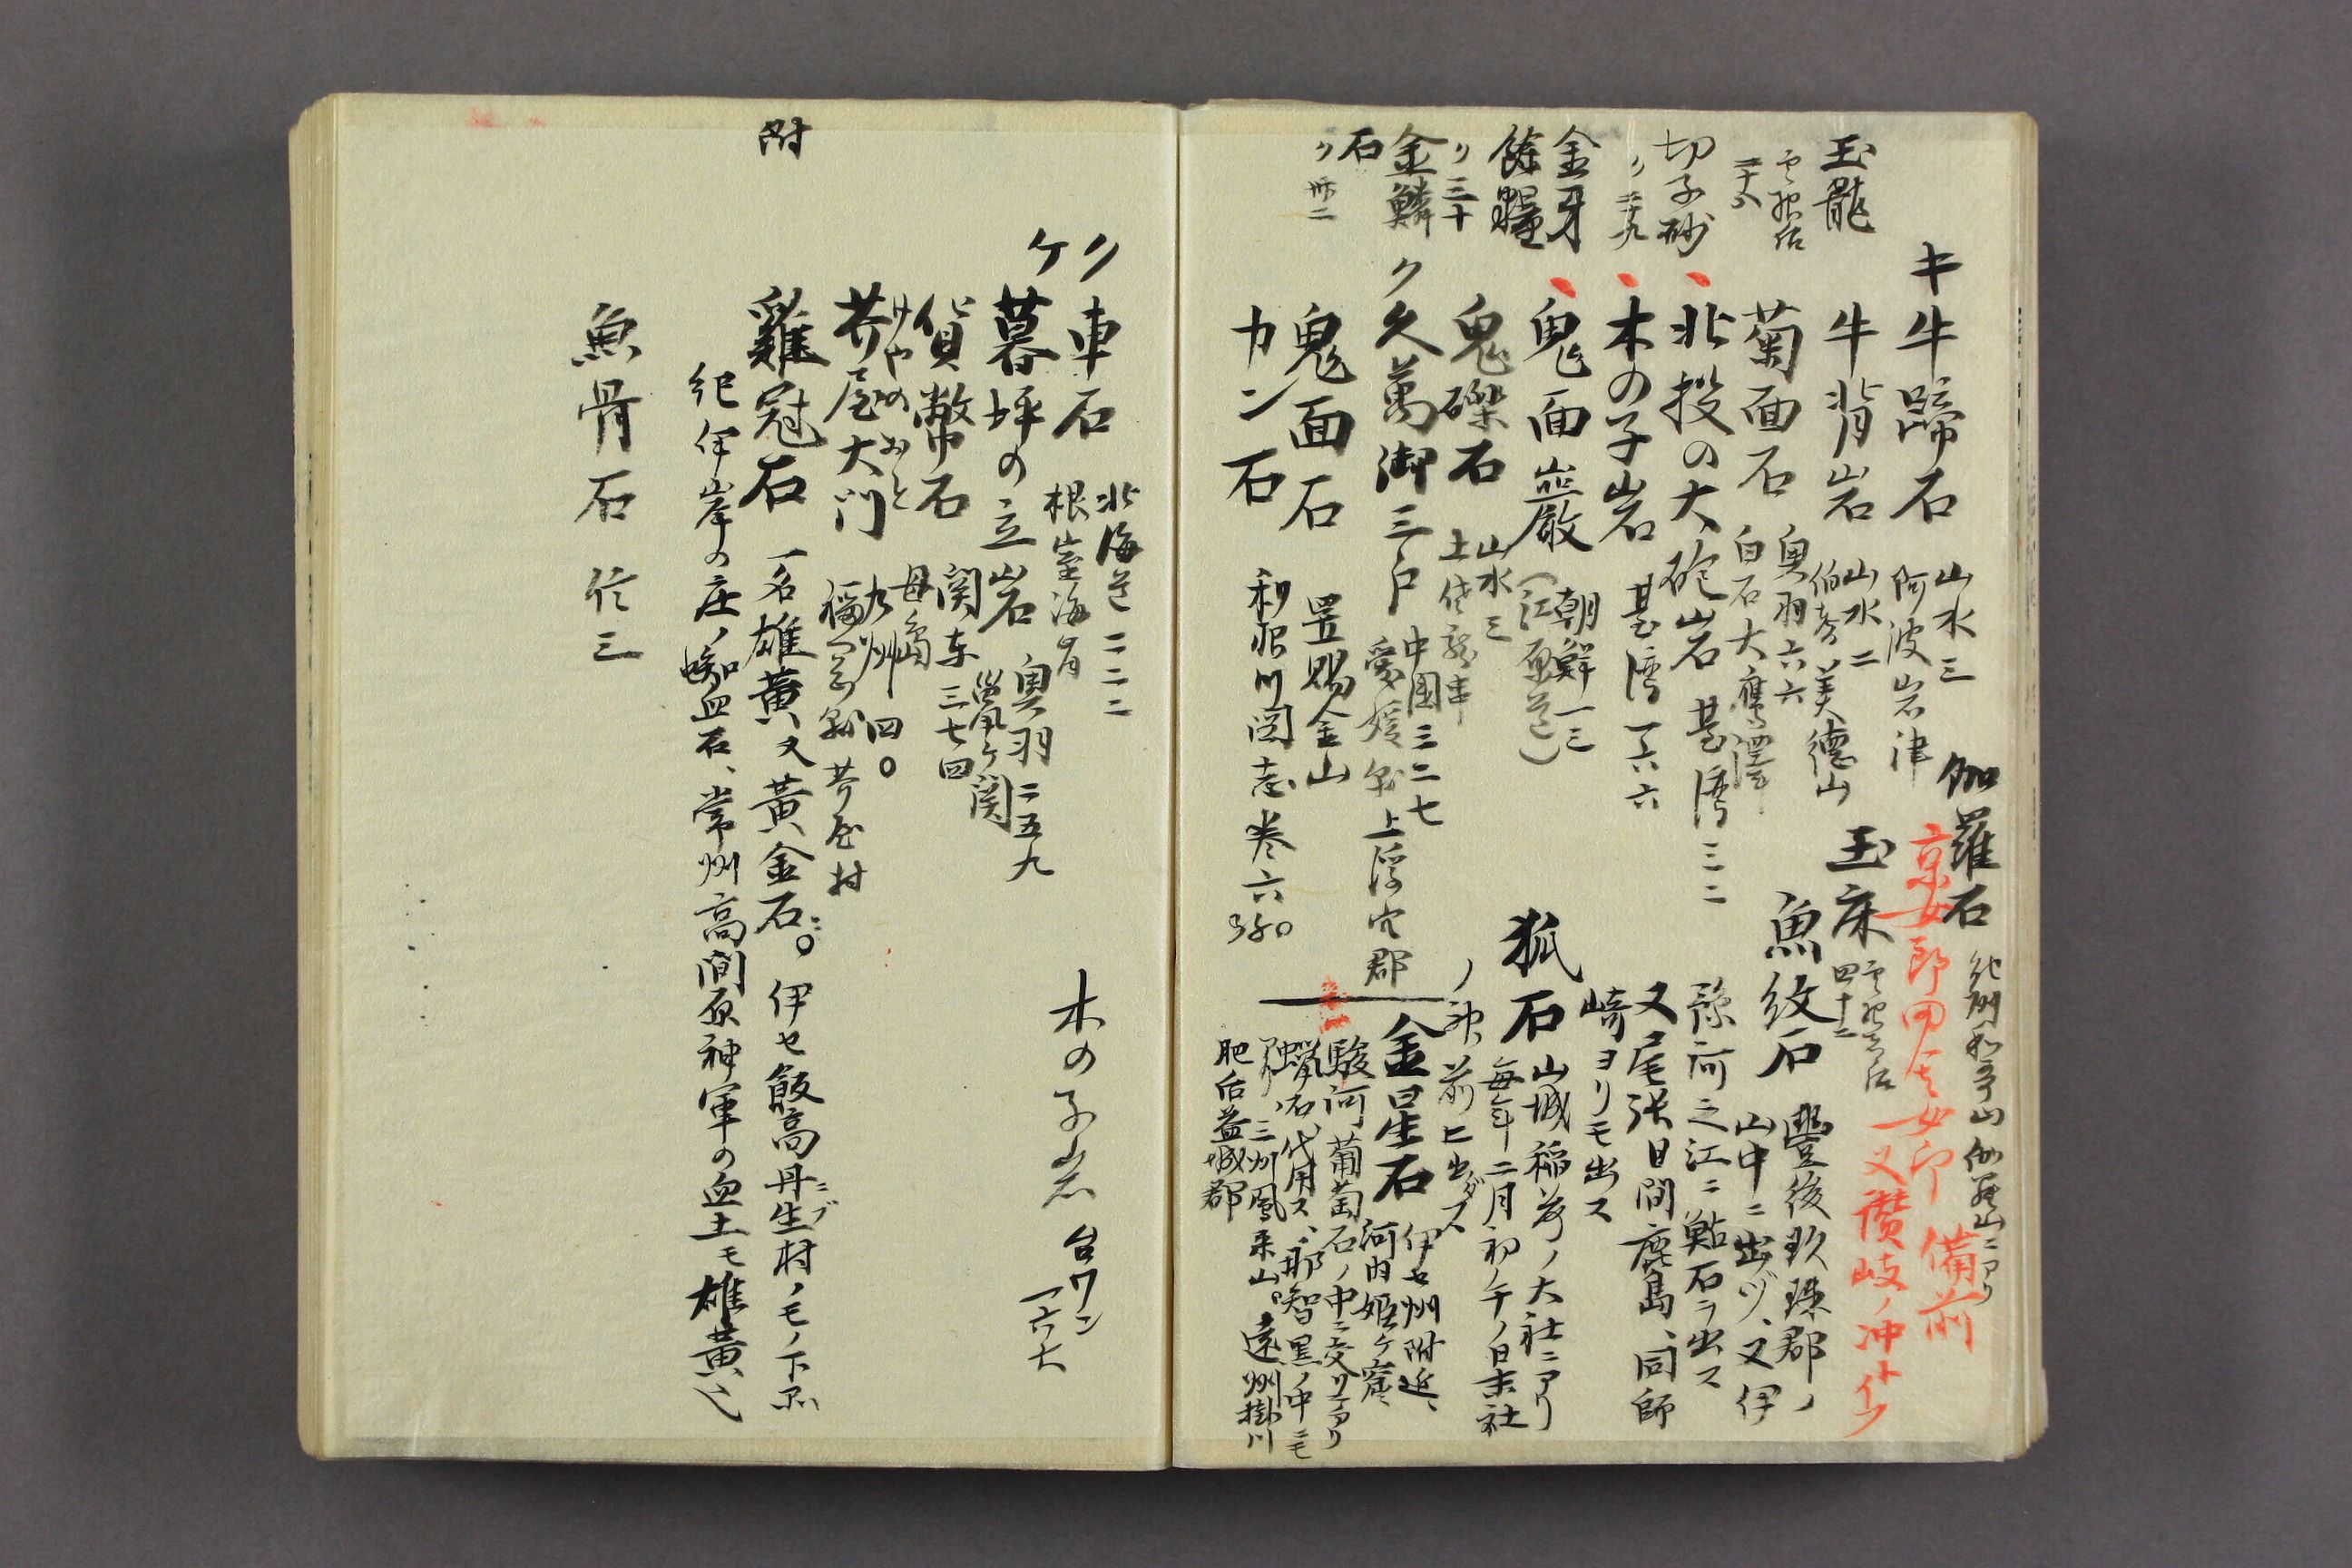 玉龍
二十八
切子砂
〃二十九
金牙
餘糧
〃三十
金鱗
石
〃卅二
キ
牛蹄石 山水三
阿波岩津
牛背岩 山水二
伯耆美徳山
菊面石 奥羽六六
白石大鷹澤
北投の大砲岩 臺湾三二
木の子岩 臺湾一六六
鬼面巌 朝鮮一三
(江原道)
鬼磔石 山水三
ク
久萬御三戸 中国三二七
愛媛県上浮穴郡
鬼面石 置賜金山
カン石 利根川図志巻六
伽羅石
京女郎田舎女郎 備前
又讃岐ノ沖ト
玉床
四十二
魚紋石 豊後玖珠郡ノ
山中ニ出ヅ、又伊
豫河之江ニ鮎石ヲ出ス
又尾張日間鹿島、同師
崎ヨリモ出ス
狐石 山城稲荷ノ大社ニアリ
毎年二月初ノ午ノ日末社
ノ神前ヒ出ダス
金星石 伊セ州附近、
河内姫ヶ窟
駿河葡萄石ノ中ニ交リテアリ
蠟石代用ス、那智黒ノ中ニモ
アリ、三州鳳来山。遠州掛川
肥后益城郡
ク
車石 北海道二二二
根室海岸
ケ
暮坪の立岩 奥羽二五九
貨幣石 関東三七四
母島
けやのおと
芥屋大門 九州四〇
福岡縣芥屋村
附
雞冠石 一名雄黄又黄金石。伊セ飯高丹生村ノモノ下品
紀伊岸の庄ノ蜘血石、常州高間原神軍の血土モ雄黄也
魚骨石
木の子岩 台ワン
一六六